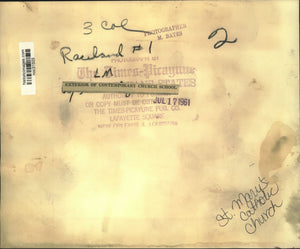 3 col
PHOTOGRAPHER
M. BATES
2
Raceland #1
PHOTOGRAPH BY
The Times-Picayune
STATES
LM
EXTERIOR OF CONTEMPORARY CHURCH SCHOOL
OR COPY MUST BE
JUL 17 1961
THE TIMES-PICAYUNE PUB. CO.
LAFAYETTE SQUARE
St. Mary's
Catholic
Church